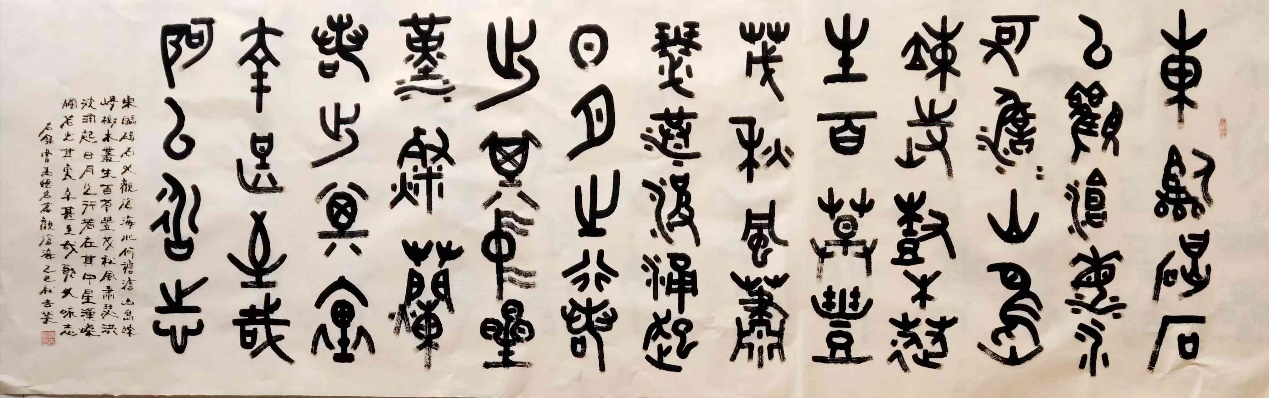 東臨碣石
以觀滄海水
何澹〻山島
竦峙樹木叢
生百草豐
茂秋風蕭
瑟洪波涌起
日月之行若
出其中星
漢燦爛
若出其里
幸甚至哉
歌以詠志
東臨碣石以觀滄海水何澹澹山島竦
峙樹木叢生百草豐茂秋風蕭瑟洪
波涌起日月之行若在其中星漢燦
爛若出其里幸甚至哉歌以詠志
右錄曹孟德名篇觀滄海乙巳秋